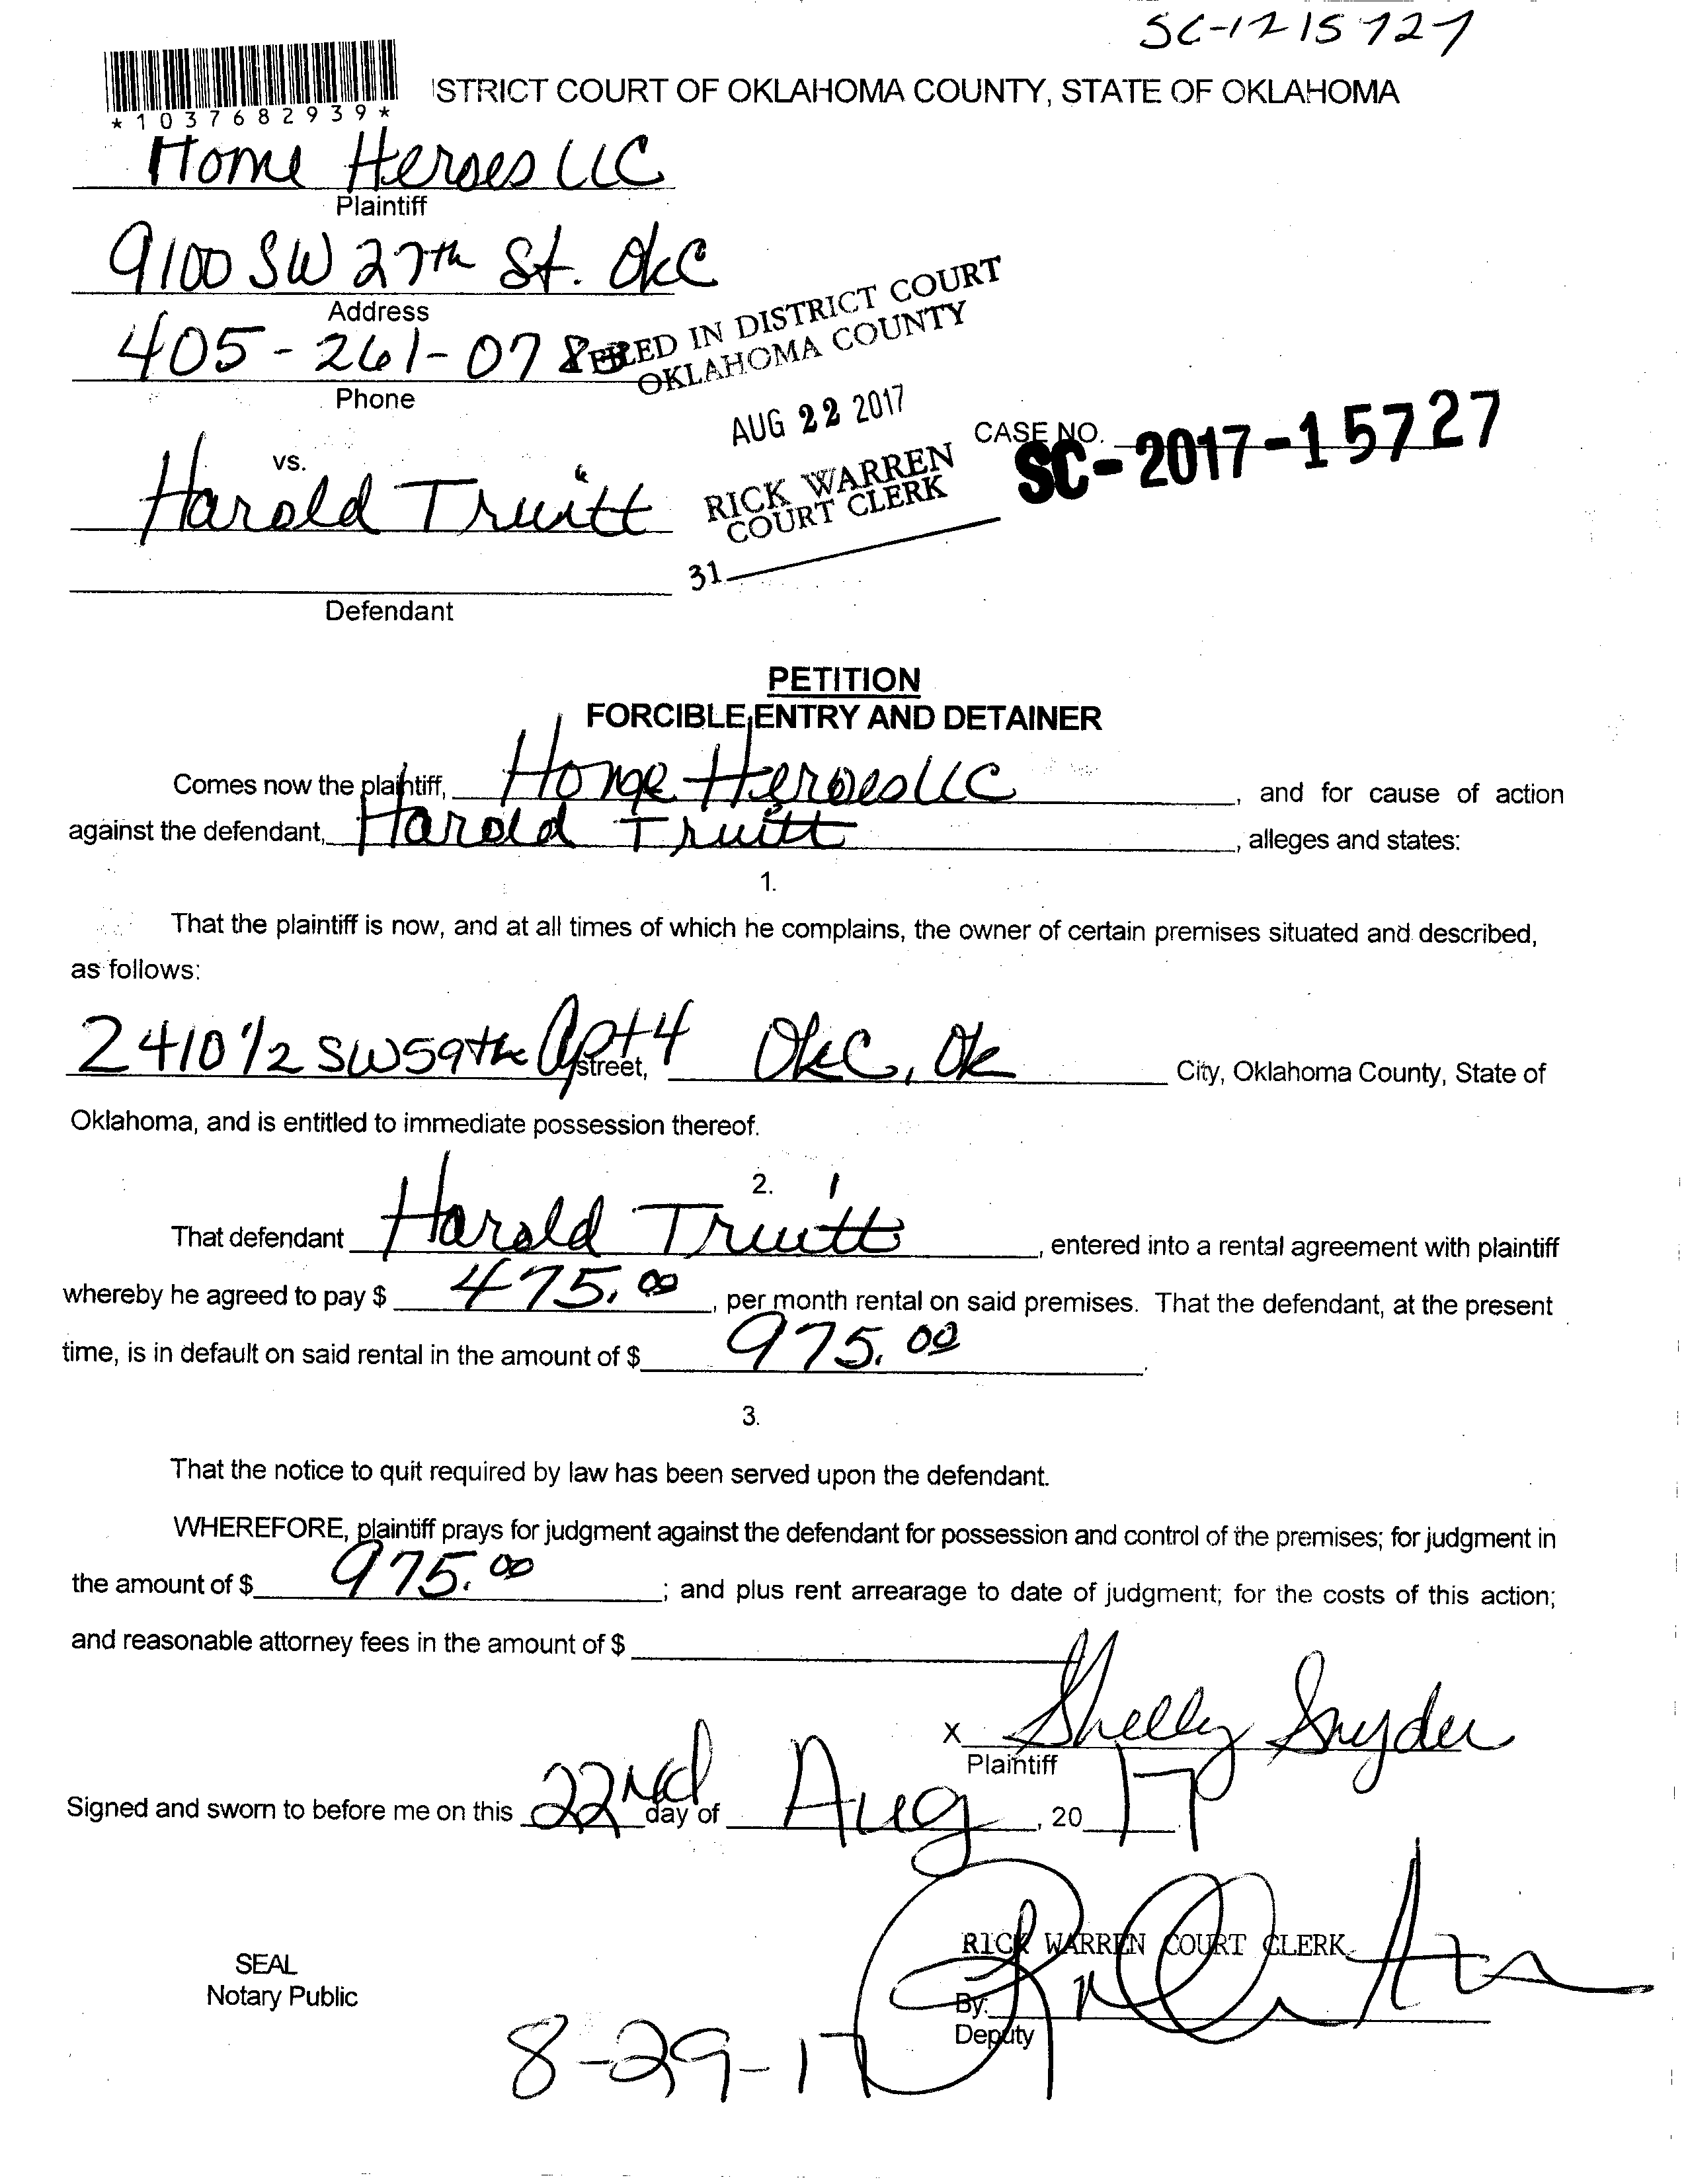 SC-17 15727
*1037682939*
ISTRICT COURT OF OKLAHOMA COUNTY, STATE OF OKLAHOMA
Home Heroes LLC
Plaintiff
9100 SW 27th St. OKC
Address
405-261-078
Phone
FILED IN DISTRICT COURT
OKLAHOMA COUNTY
AUG 22 2017
RICK WARREN
COURT CLERK
31
CASE NO. SC-2017-15727
vs.
Harold Truitt
Defendant
PETITION
FORCIBLE ENTRY AND DETAINER
Comes now the plaintiff, Home Heroes LLC, and for cause of action
against the defendant, Harold Truitt, alleges and states:
1.
That the plaintiff is now, and at all times of which he complains, the owner of certain premises situated and described,
as follows:
2410 1/2 SW 59th Apt 4 street, OKC, Ok City, Oklahoma County, State of
Oklahoma, and is entitled to immediate possession thereof.
2.
That defendant Harold Truitt, entered into a rental agreement with plaintiff
whereby he agreed to pay $ 475.00, per month rental on said premises. That the defendant, at the present
time, is in default on said rental in the amount of $ 975.00.
3.
That the notice to quit required by law has been served upon the defendant.
WHEREFORE, plaintiff prays for judgment against the defendant for possession and control of the premises; for judgment in
the amount of $ 975.00; and plus rent arrearage to date of judgment; for the costs of this action;
and reasonable attorney fees in the amount of $
X Shelly Snyder
Plaintiff
Signed and sworn to before me on this 22nd day of Aug, 20 17
RICK WARREN COURT CLERK
SEAL
Notary Public
By:
Deputy
8-29-17